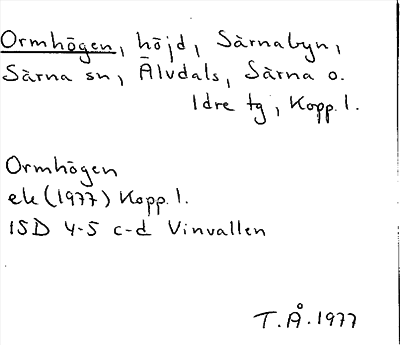 Ormhögen, höjd, Särnabyn,
Särna sn, Älvdals, Särna o.
Idre tg, Kopp. l.
Ormhögen
ek (1977) Kopp. l.
15D 4-5 c-d Vinvallen
T.Å. 1977